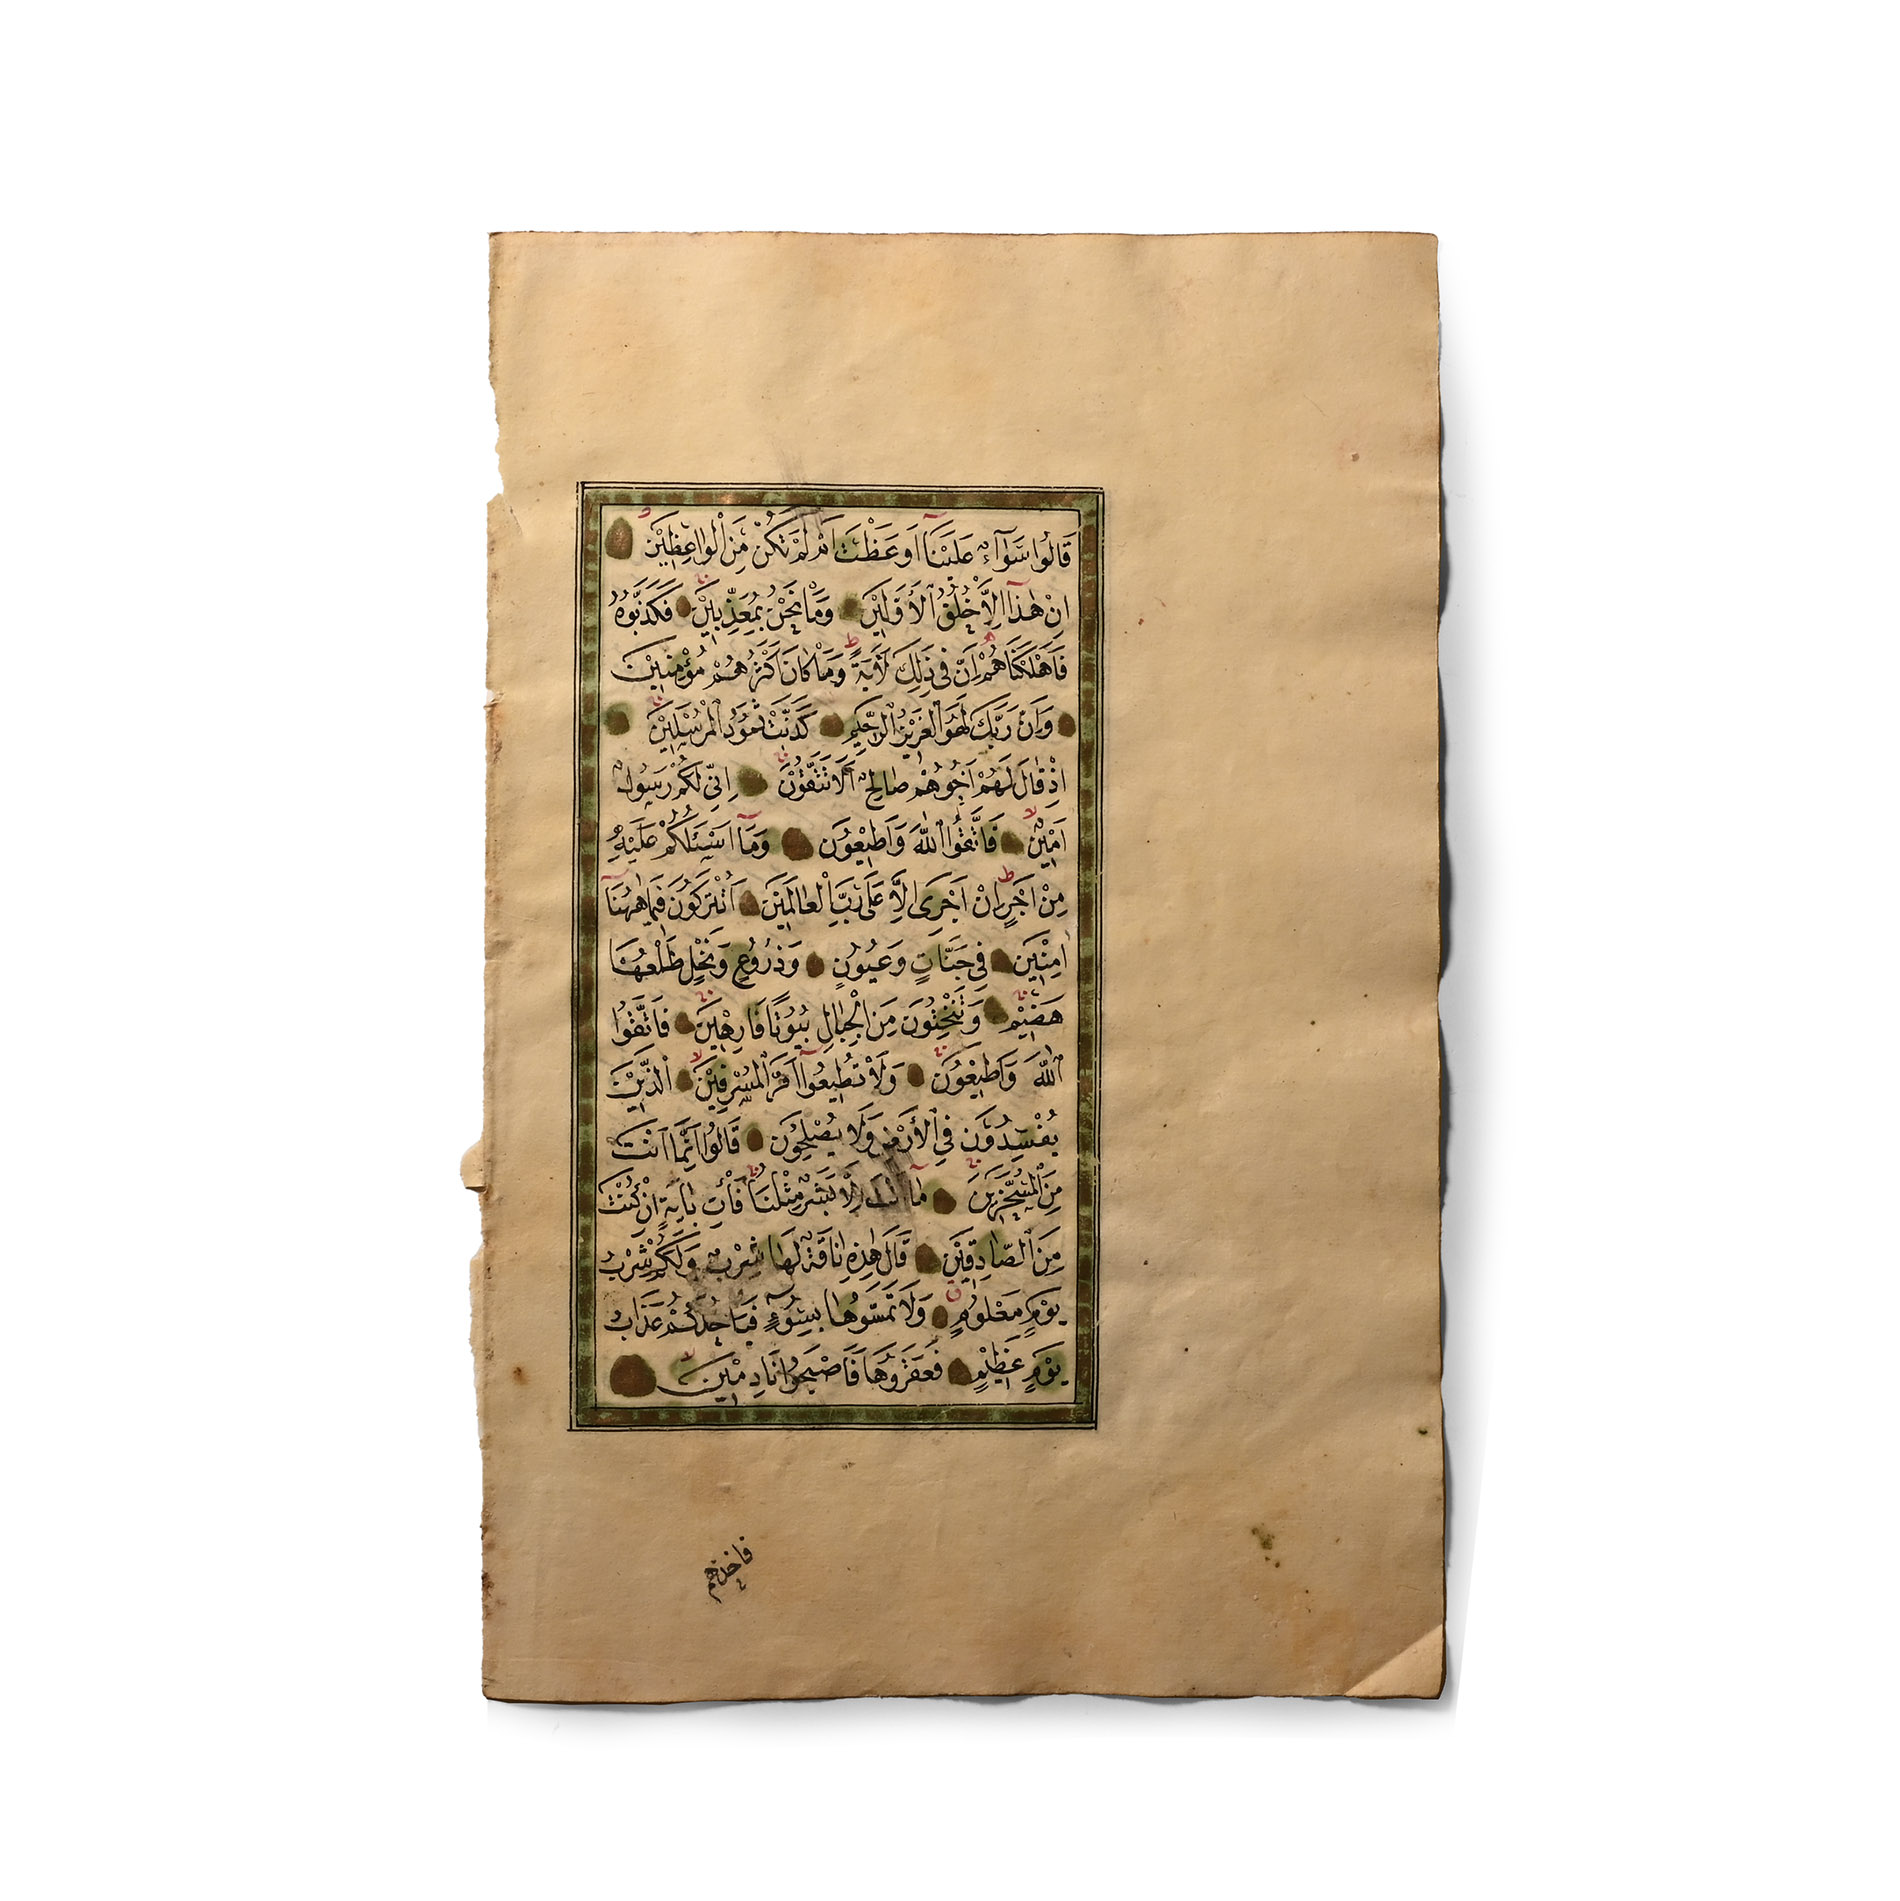 قَالُوا سَوَٓاءٌ عَلَيْنَٓا اَوَعَظْتَ اَمْ لَمْ تَكُنْ مِنَ الْوَاعِظِينَ
اِنْ هٰذَٓا اِلَّا خُلُقُ الْاَوَّلِينَ وَمَا نَحْنُ بِمُعَذَّبِينَ فَكَذَّبُوهُ
فَاَهْلَكْنَاهُمْ اِنَّ فِى ذٰلِكَ لَاٰيَةً وَمَا كَانَ اَكْثَرُهُمْ مُؤْمِنِينَ
وَاِنَّ رَبَّكَ لَهُوَ الْعَزِيزُ الرَّحِيمُ كَذَّبَتْ ثَمُودُ الْمُرْسَلِينَ
اِذْ قَالَ لَهُمْ اَخُوهُمْ صَالِحٌ اَلَا تَتَّقُونَ اِنِّى لَكُمْ رَسُولٌ
اَمِينٌ فَاتَّقُوا اللّٰهَ وَاَطِيعُونِ وَمَٓا اَسْـَٔلُكُمْ عَلَيْهِ
مِنْ اَجْرٍ اِنْ اَجْرِىَ اِلَّا عَلٰى رَبِّ الْعَالَمِينَ اَتُتْرَكُونَ فِى مَا هٰهُنَٓا
اٰمِنِينَ فِى جَنَّاتٍ وَعُيُونٍ وَزُرُوعٍ وَنَخْلٍ طَلْعُهَا
هَضِيمٌ وَتَنْحِتُونَ مِنَ الْجِبَالِ بُيُوتًا فَارِهِينَ فَاتَّقُوا
اللّٰهَ وَاَطِيعُونِ وَلَا تُطِيعُٓوا اَمْرَ الْمُسْرِفِينَ الَّذِينَ
يُفْسِدُونَ فِى الْاَرْضِ وَلَا يُصْلِحُونَ قَالُٓوا اِنَّمَٓا اَنْتَ
مِنَ الْمُسَحَّرِينَ مَٓا اَنْتَ اِلَّا بَشَرٌ مِثْلُنَا فَأْتِ بِاٰيَةٍ اِنْ كُنْتَ
مِنَ الصَّادِقِينَ قَالَ هٰذِهِ نَاقَةٌ لَهَا شِرْبٌ وَلَكُمْ شِرْبُ
يَوْمٍ مَعْلُومٍ وَلَا تَمَسُّوهَا بِسُٓوءٍ فَيَأْخُذَكُمْ عَذَابُ
يَوْمٍ عَظِيمٍ فَعَقَرُوهَا فَاَصْبَحُوا نَادِمِينَ
فاخذهم